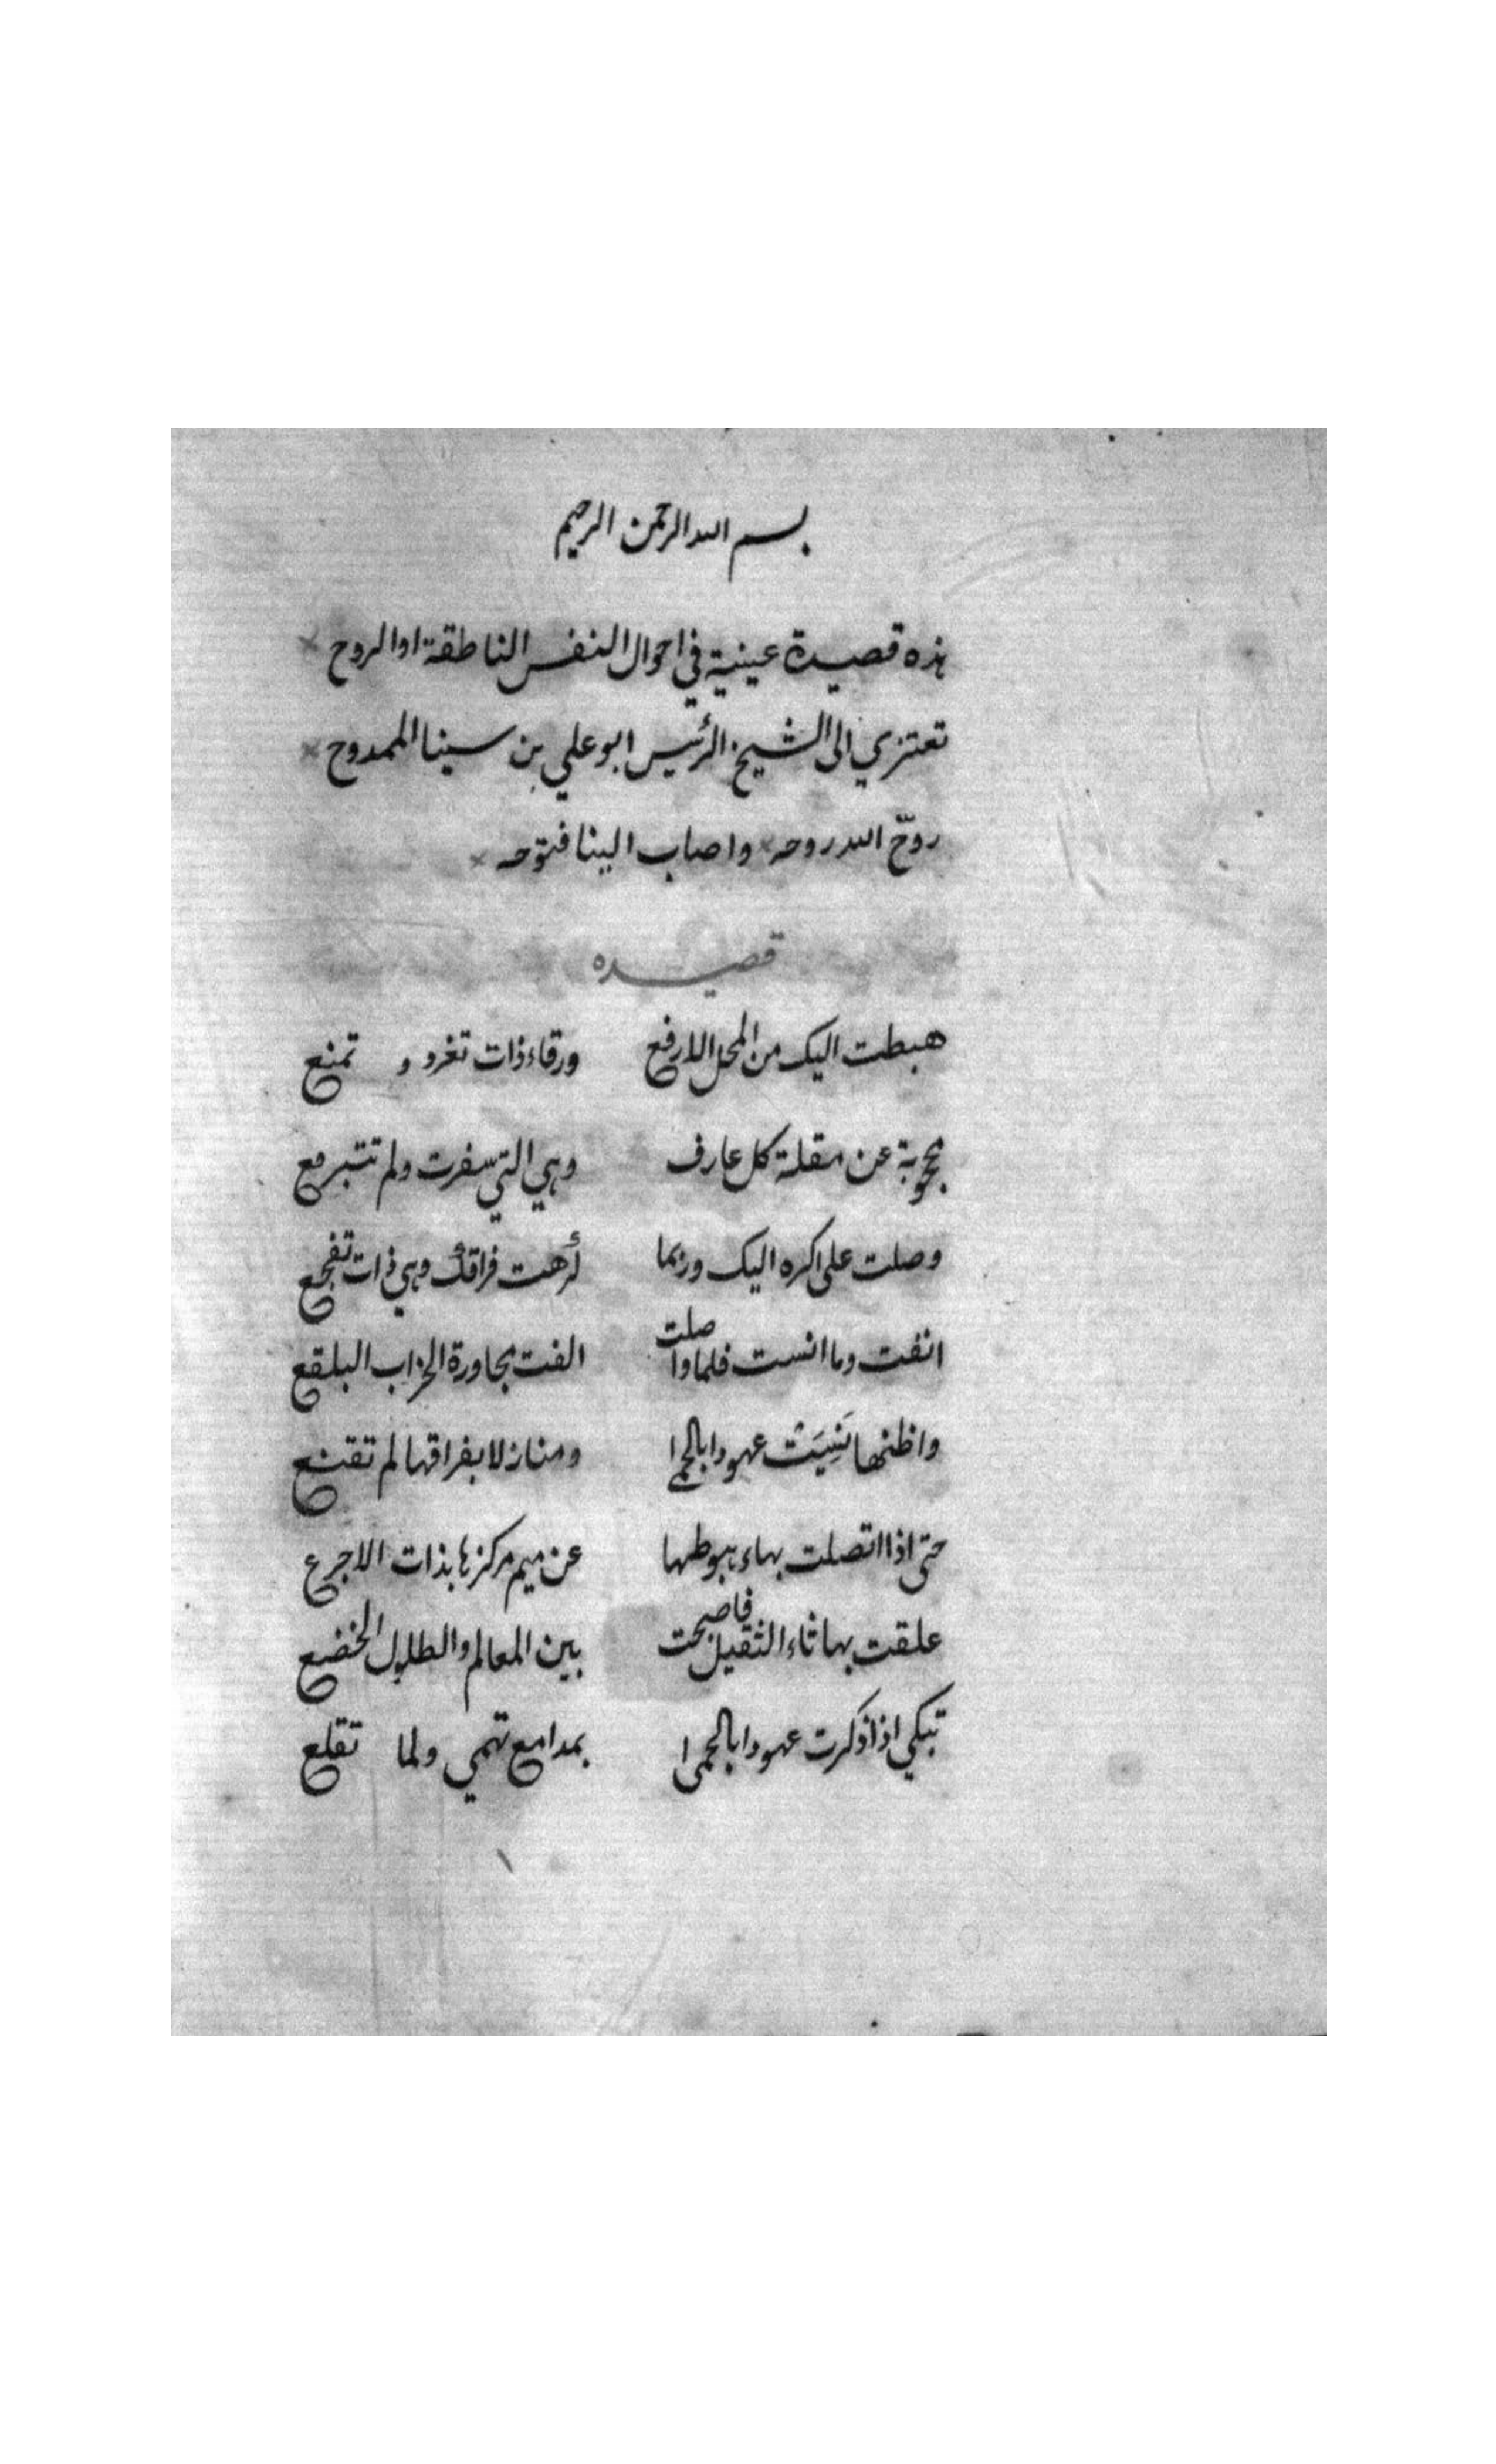 بسم الله الرحمن الرحيم
هذه قصيدة عينية في احوال النفس الناطقة او الروح
تعتزي الى الشيخ الرئيس ابو علي بن سينا الممدوح
روّح الله روحه واصاب الينا فتوحه
قصيده
هبطت اليك من المحل الارفع ورقاء ذات تغرد و تمنع
محجوبة عن مقلة كل عارف وهي التي سفرت ولم تتبرقع
وصلت على كره اليك وربما كرهت فراقك وهي ذات تفجع
انفت وما انست فلما واصلت الفت مجاورة الخراب البلقع
واظنها نَسِيَت عهودا بالحما ومنازلا بفراقها لم تقنع
حتى اذا اتصلت بهاء هبوطها عن ميم مركزها بذات الاجرع
علقت بها ثاء الثقيل فاصبحت بين المعالم والطلول الخضع
تبكي اذا ذكرت عهودا بالحما بمدامع تهمي ولما تقلع